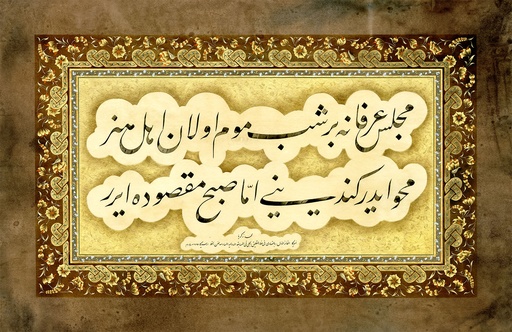 مجلس عرفانه بر شب موم اولان اهل هنر
محو ايدر كندينى امّا صبح مقصوده ايرر